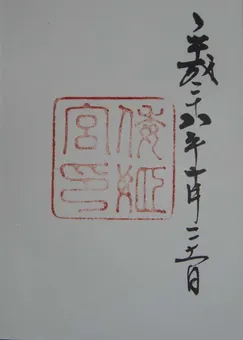 平成二十六年十月二十一日
倭姫
宮印